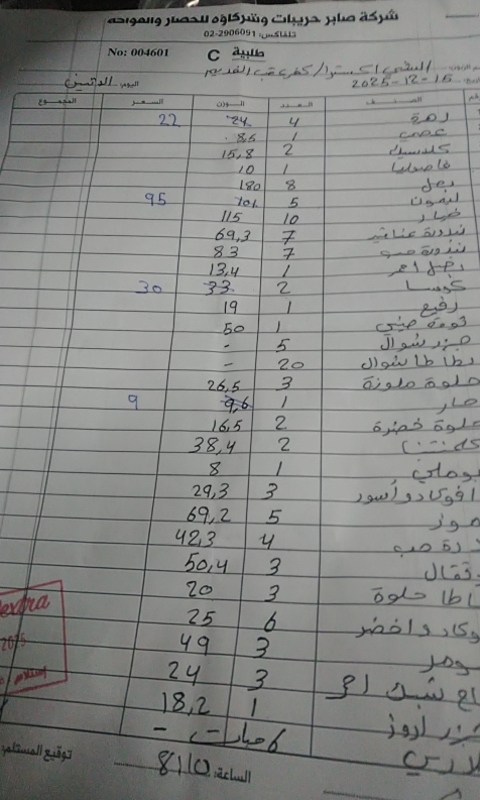 شركة صابر حريبات وشركاؤه للخضار والفواكه
تلفاكس: 02-2906091
طلبية C No: 004601
2025-12-15
اليوم: الاثنين
الصنف العدد الوزن السعر المجموع
زهرة 4 24 22
1 8,5
كلاسيك 2 15,8
فاصوليا 1 10
بصل 8 180
ليمون 5 101 95
خيار 10 115
بندورة عناقيد 7 69,3
بندورة 7 83
بصل احمر 1 13,4
كوسا 2 33 30
رفيع 1 19
ثومة صيني 1 50
جزر شوال 5 -
بطاطا شوال 20 -
حلوة ملونة 3 26,5
حار 1 9,6 9
حلوة خضرة 2 16,5
كلمنتينا 2 38,4
بوملي 1 8
افوكادو أسود 3 29,3
موز 5 69,2
ذرة حب 4 42,3
برتقال 3 50,4
بطاطا حلوة 3 20
افوكادو اخضر 6 25
بومر 3 49
3 24
جزر لوز 1 18,2
6 حبات -
الساعة: 8:10
توقيع المستلم
extra
2025
إستلام